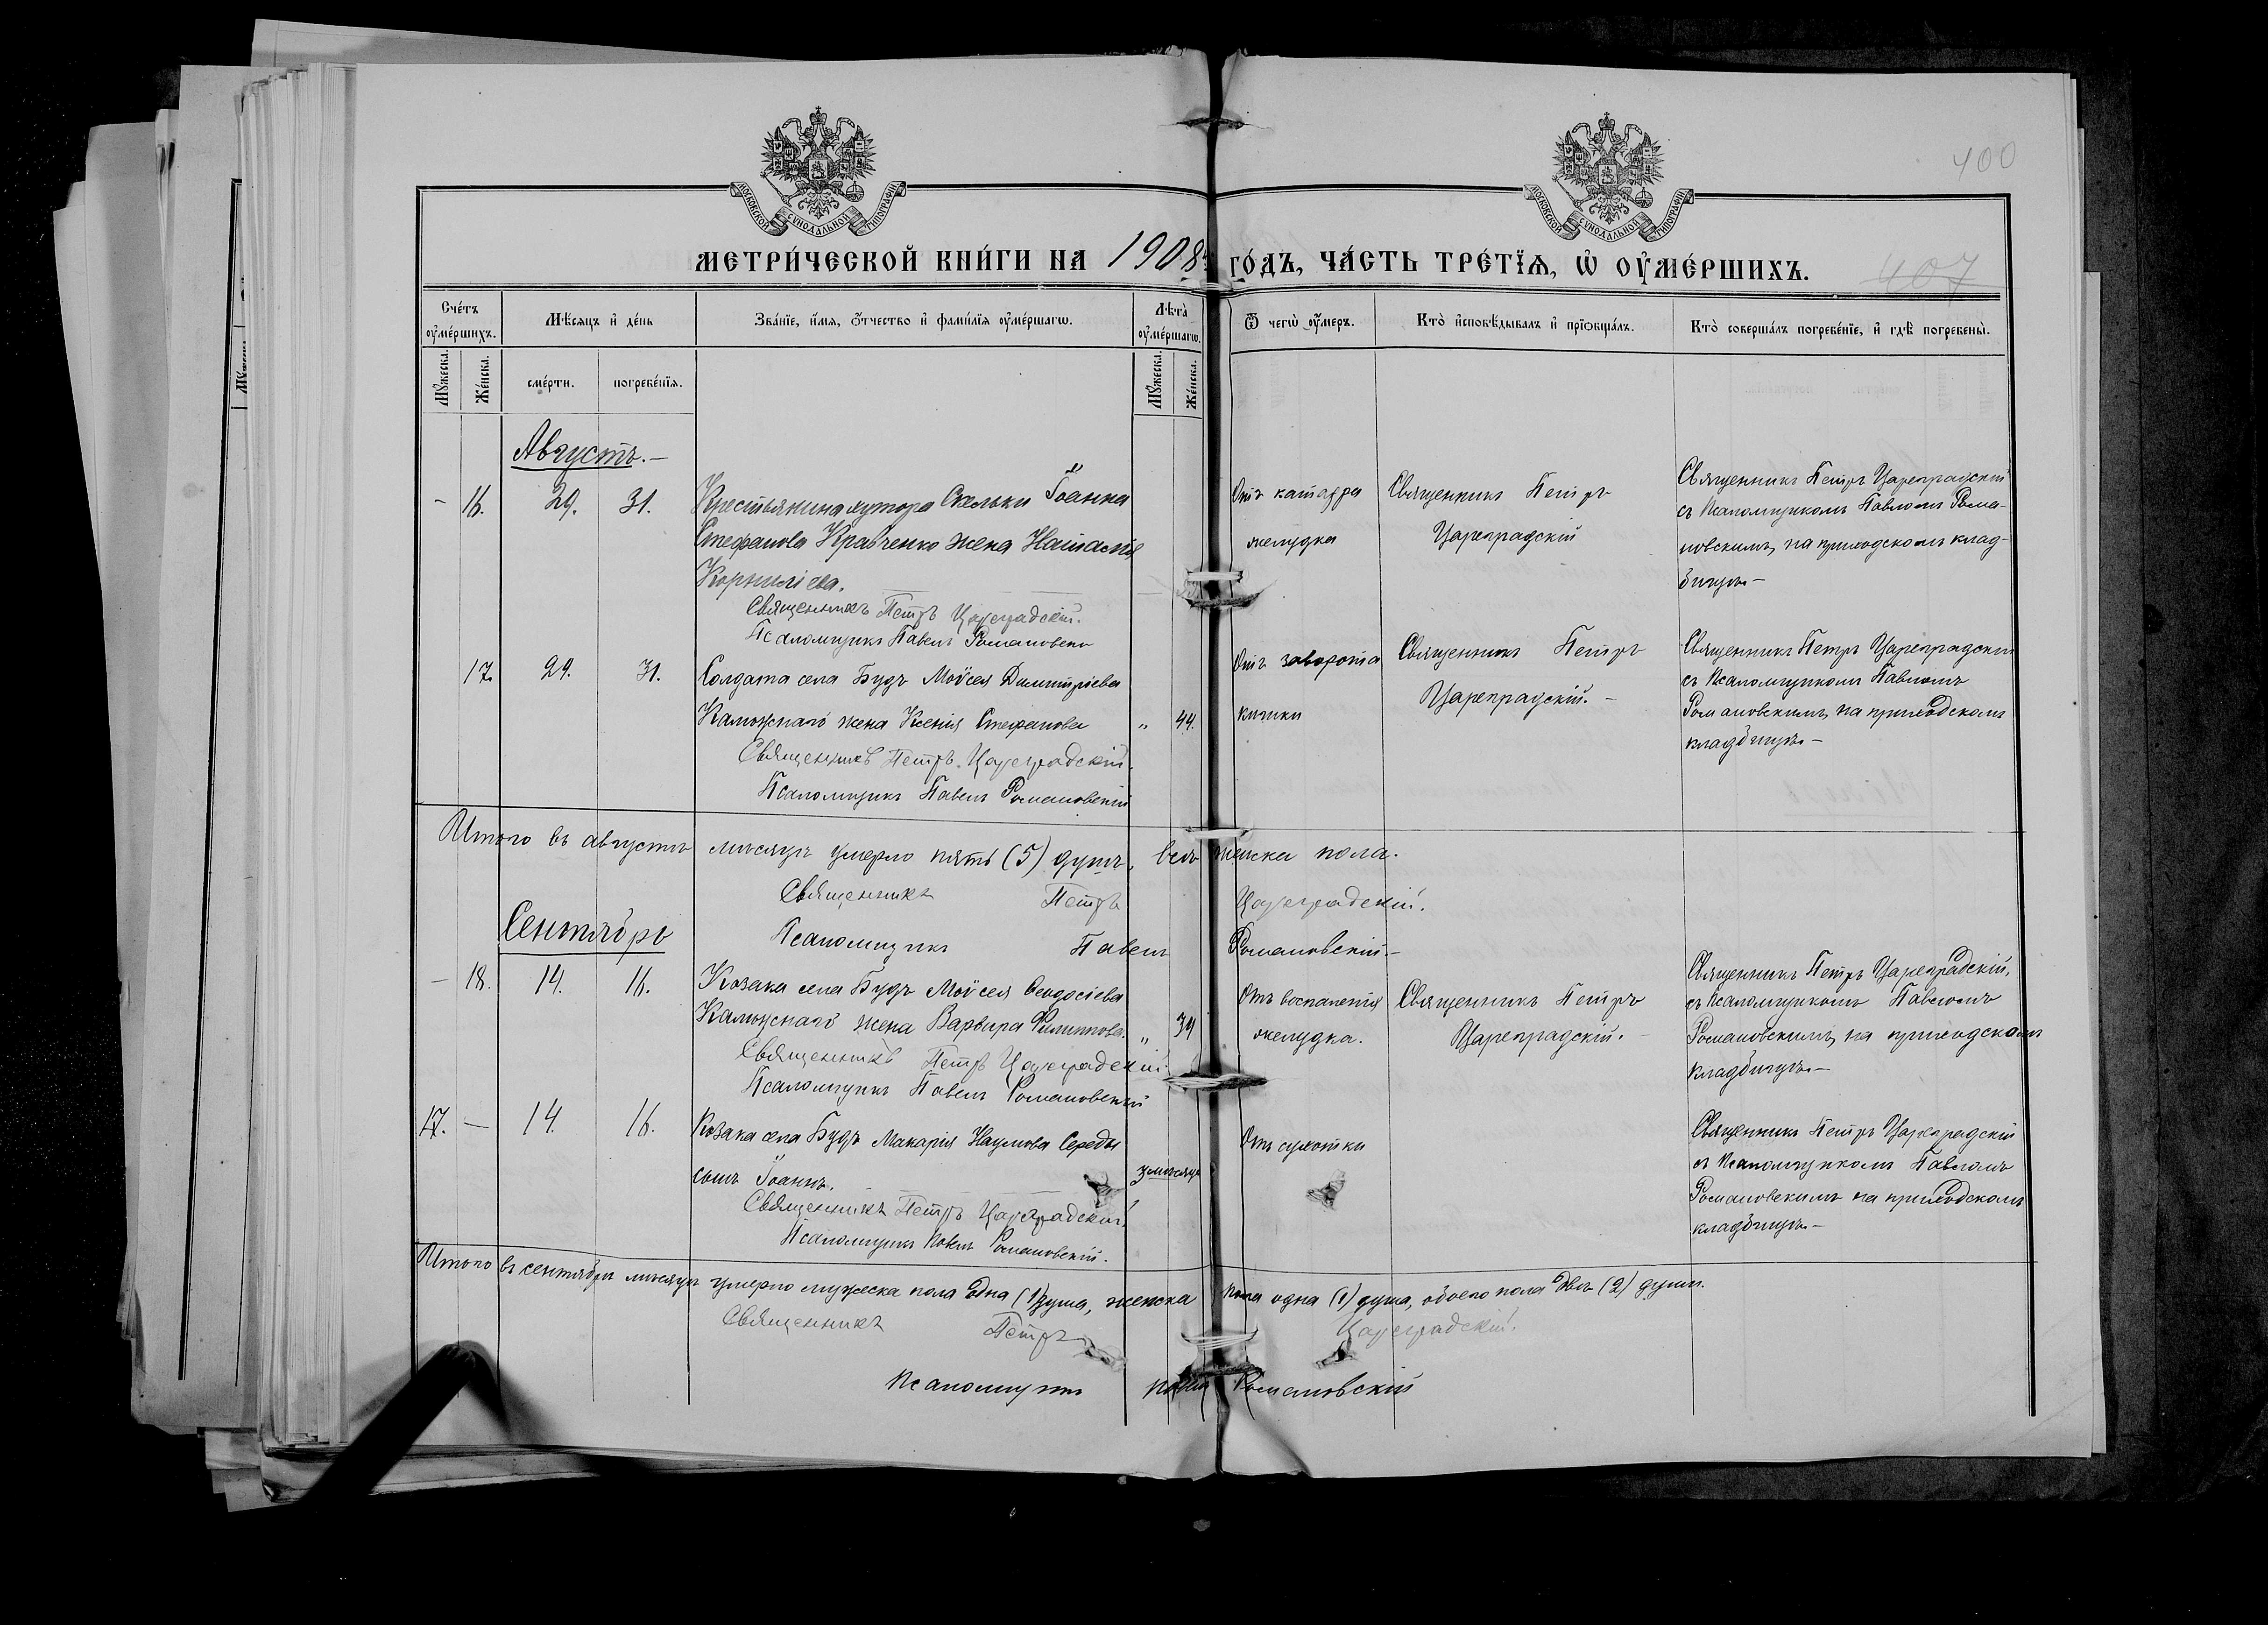 400
МОСКОВСКОЙ СѴНОДАЛЬНОЙ ТИПОГРАФІИ
МОСКОВСКОЙ СѴНОДАЛЬНОЙ ТИПОГРАФІИ
МЕТРИ́ЧЕСКОЙ КНИ́ГИ НА 1908й ГО́ДЪ, ЧА́СТЬ ТРЕ́ТЇѦ, Ѡ҆ ОУ҆МЕ́РШИХЪ.
407
Сче́тъ оу҆ме́ршихъ.
Мꙋ́жеска.
Же́нска.
Мѣ́сяцъ и҆ де́нь
сме́рти.
погребе́нїѧ.
Зва́нїе, и҆́мѧ, ѻ҆́тчество и҆ фами́лїѧ оу҆ме́ршагѡ.
Лѣ́та оу҆ме́ршагѡ.
Мꙋ́жеска.
Же́нска.
Ѿ чегѡ̀ оу҆́меръ.
Кто̀ и҆сповѣ́дывалъ и҆ прїѡбща́лъ.
Кто̀ соверша́лъ погребе́нїе, и҆ гдѣ̀ погребены̀.
Августъ.—
- 16. 29. 31.
Крестьянина хутора Скельки Іоанна
Стефанова Кравченко жена Наталія
Корниліева.
Священникъ Петръ Цареградскій.
Псаломщикъ Павелъ Романовскій
Отъ катарра
желудка
Священникъ Петръ
Цареградскій
Священникъ Петръ Цареградскій
съ Псаломщикомъ Павломъ Рома-
новскимъ, на приходскомъ клад-
бищѣ.—
17. 29. 31.
Солдата села Будъ Моѵсея Димитріева
Калюжнаго жена Ксенія Стефанова " 44.
Священникъ Петръ Цареградскій.
Псаломщикъ Павелъ Романовскій
Отъ заворота
кишки
Священникъ Петръ
Цареградскій.—
Священникъ Петръ Цареградскій
съ Псаломщикомъ Павломъ
Романовскимъ, на приходскомъ
кладбищѣ.—
Итого въ августѣ мѣсяцѣ умерло пять (5) душъ, всѣ женска пола.
Священникъ Петръ Цареградскій.
Псаломщикъ Павелъ Романовскій.—
Сентябрь
— 18. 14. 16.
Козака села Будъ Моѵсея Ѳеодосіева
Калюжнаго жена Варвара Филиппова. " 34
Священникъ Петръ Цареградскій.
Псаломщикъ Павелъ Романовскій
Отъ воспаленія
желудка.
Священникъ Петръ
Цареградскій.—
Священникъ Петръ Цареградскій,
съ Псаломщикомъ Павломъ
Романовскимъ, на приходскомъ
кладбищѣ.—
17. — 14. 16.
Козака села Будъ Макарія Наумова Середы
сынъ Іоаннъ. 3 мѣсяца
Священникъ Петръ Цареградскій.
Псаломщикъ Павелъ Романовскій.
Отъ сухотки
Священникъ Петръ Цареградскій
съ Псаломщикомъ Павломъ
Романовскимъ на приходскомъ
кладбищѣ.—
Итого въ сентябрѣ мѣсяцѣ умерло мужеска пола одна (1) душа, женска пола одна (1) душа, обоего пола двѣ (2) души.
Священникъ Петръ Цареградскій.
Псаломщикъ Павелъ Романовскій